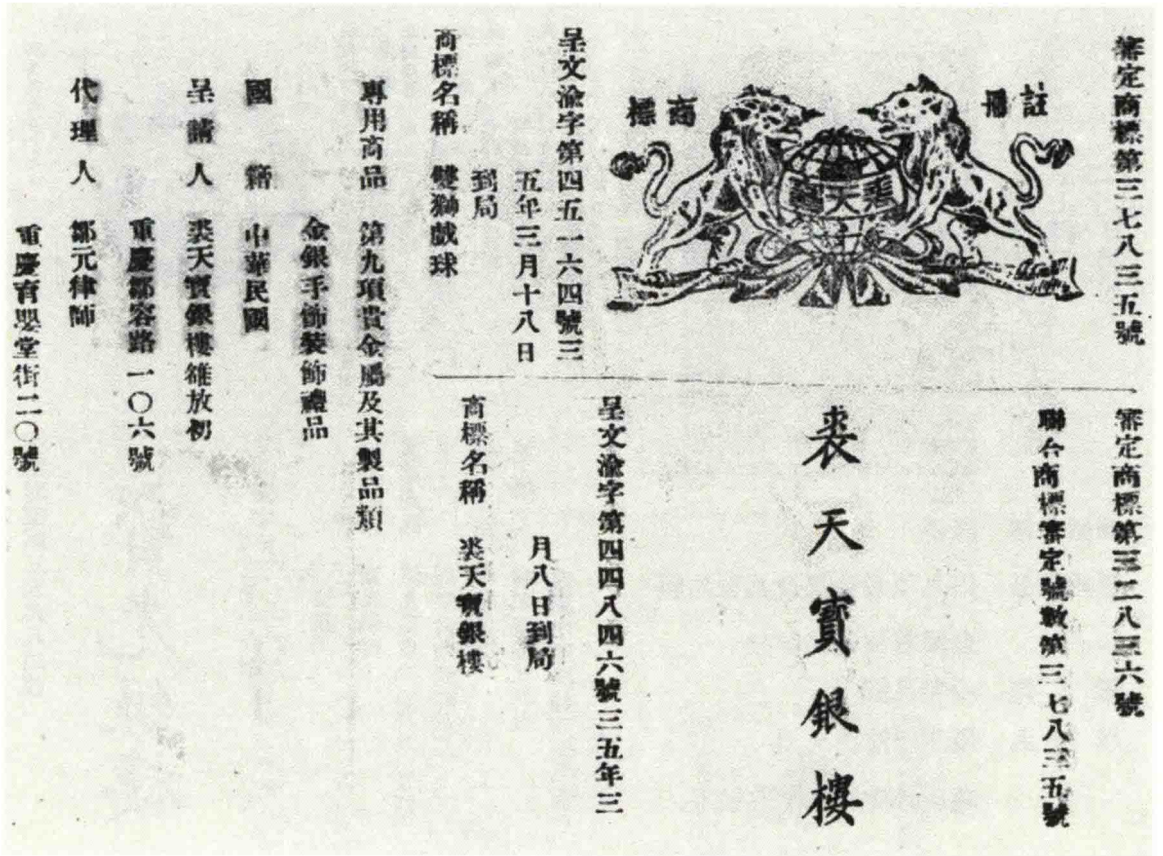 審定商標第三七八三五號
註冊
商標
裘天寶
呈文渝字第四五一六四號三
五年三月十八日
到局
商標名稱 雙獅戲球
審定商標第三二八三六號
聯合商標審定號數第三七八三五號
裘天寶銀樓
呈文渝字第四四八四六號三五年三
月八日到局
商標名稱 裘天寶銀樓
專用商品 第九項貴金屬及其製品類
金銀手飾裝飾禮品
國籍 中華民國
呈請人 裘天寶銀樓放初
重慶鄒容路一〇六號
代理人 鄒元律師
重慶育嬰堂街二〇號